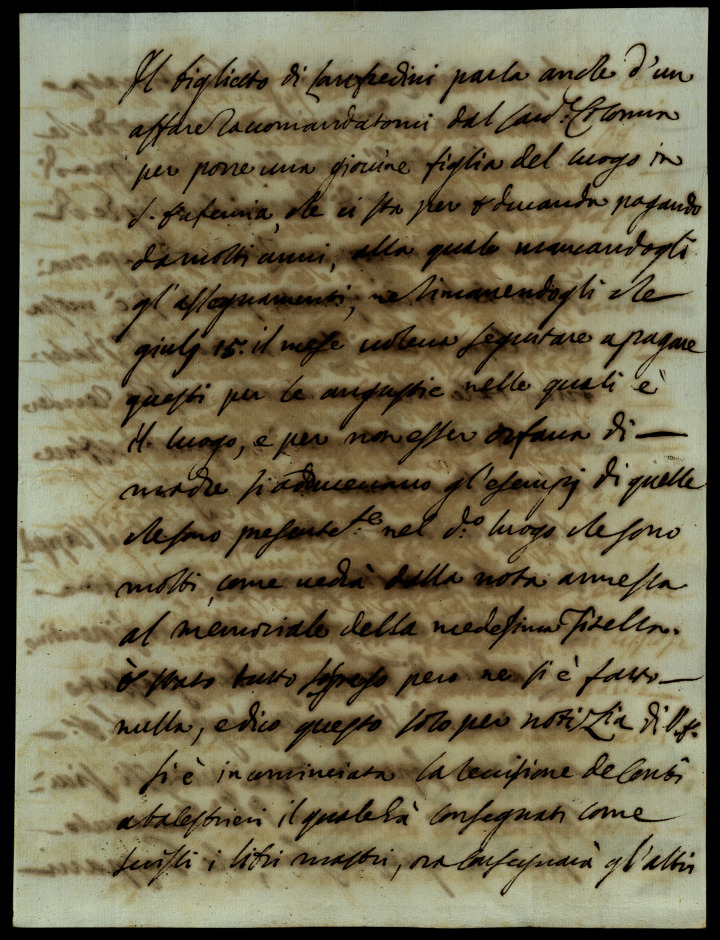 Il biglietto di Lanfredini parla anche d'un
affare racomandatomi dal Card.e Colonna
per porre una giovine figlia del luogo in
S. Eufemia, che ci sta per educanda pagando
da molti anni, alla quale mancandogli
gl'assegnamenti, ne rimanendogli che
giulij 15. il mese voleva seguitare a pagare
questi per le angustie nelle quali è
il luogo, e per non esser orfana di
madre si adducevano gl'esempij di quelle
che sono presentem.te nel d.o luogo che sono
molti, come vedrà dalla nota annessa
al memoriale della medesima Zitella.
È stato tutto sospeso pero ne si è fatto
nulla, e dico questo solo per notizia di V.S.
Si è incominciata la revisione de Conti
a balestrieri il quale hà consegnati come
scrissi i libri mastri, ora consegnarà gl'altri